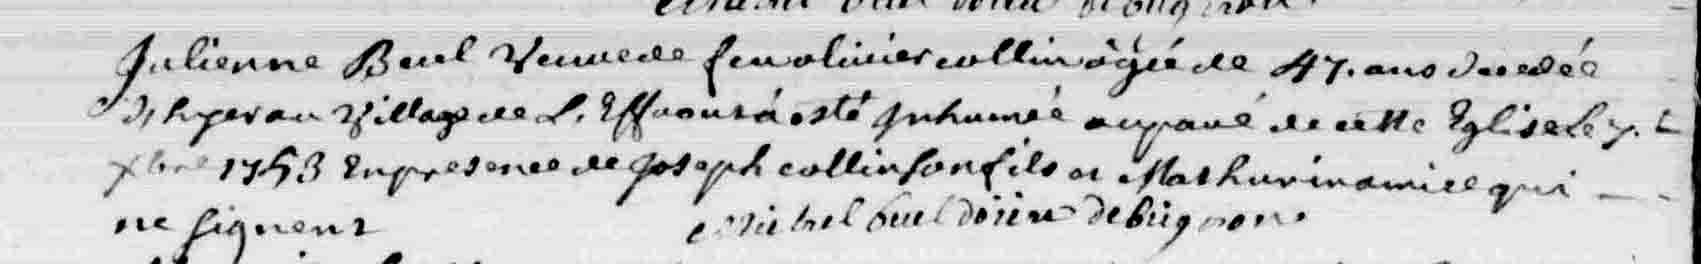 Julienne Buel Veuve de feu olivier collin âgée de 47. ans decedée
d'hyer au Village de L'Effaour á esté Inhumée au pavé de cette Eglise le 7.e
xbre 1753 En presence de Joseph collin son fils et Mathurin amice qui
ne signent Michel buel doien de bugnon.